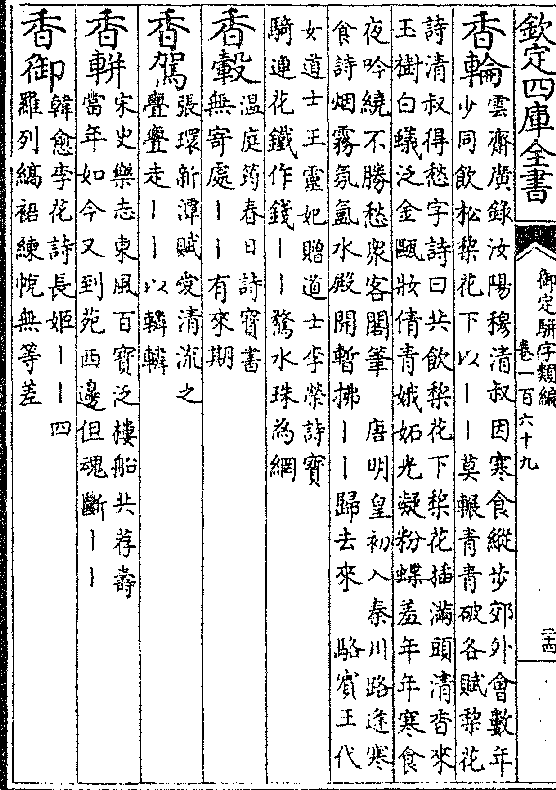 欽定四庫全書
御定駢字類編
卷一百六十九
二十四
香輪
雲齋廣錄汝陽穆清叔因寒食縱步郊外會數年
少同飲松棃花下以丨丨莫輾青青破各賦棃花
詩清叔得愁字詩曰共飲棃花下棃花插滿頭清香來
玉樹白蟻泛金甌妝倩青娥妬光凝粉蝶羞年年寒食
夜吟繞不勝愁衆客閣筆　唐明皇初入秦川路逢寒
食詩烟霧氛氲水殿開暫拂丨丨歸去來　駱賓王代
女道士王靈妃贈道士李榮詩寶
騎連花鐵作錢丨丨鶩水珠為網
香轂
溫庭筠春日詩寶書
無寄處丨丨有來期
香駕
張環新潭賦爰清流之
亹亹走丨丨以轔轔
香軿
宋史樂志東風百寶泛樓船共荐壽
當年如今又到苑西邊但魂斷丨丨
香御
韓愈李花詩長姬丨丨四
羅列縞裙練帨無等差